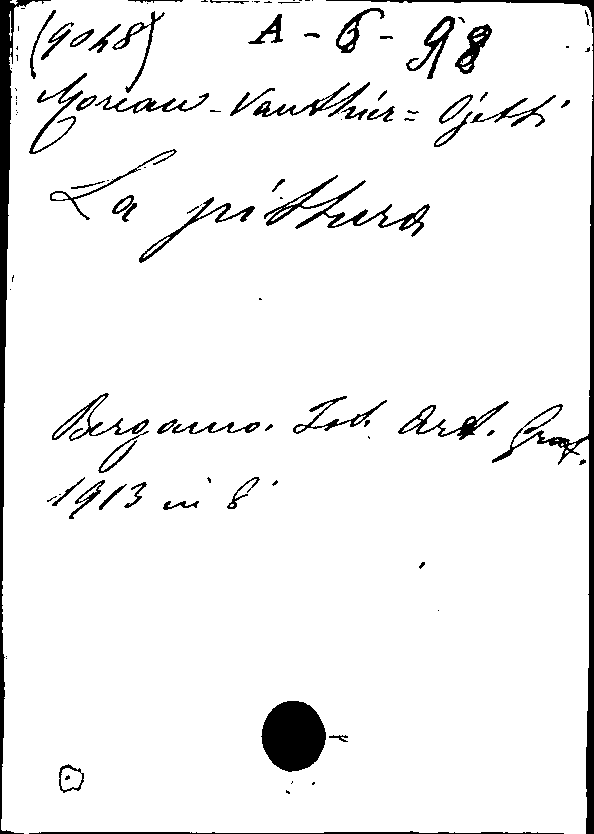 (9048) A - 6 - 98
Moreau-Vauthier = Ojetti
La pittura
Bergamo. Ist. Art. Graf.
1913 in 8°